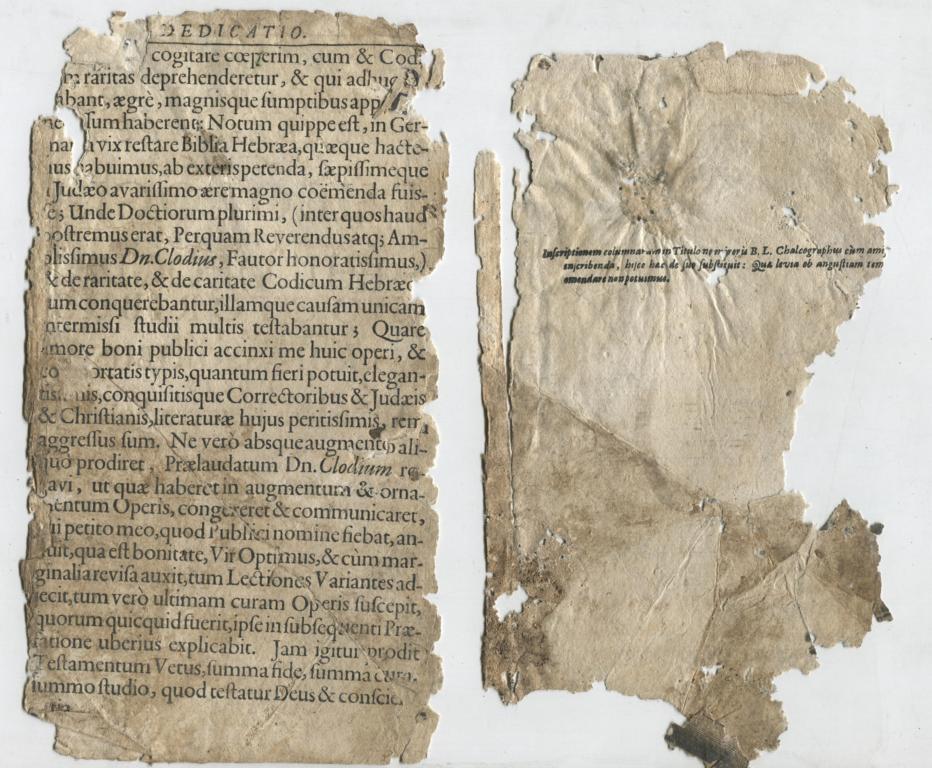 DEDICATIO.
cogitare cœperim, cum & Cod.
raritas deprehenderetur, & qui adhuc
abant, ægrè, magnisque ſumptibus app
ſum haberent: Notum quippe eſt, in Ger-
vix reſtare Biblia Hebræa, quæque hacte-
nus habuimus, ab exteris petenda, ſæpiſſimeque
Judæo avariſſimo ære magno coëmenda fuiſ-
ſe; Unde Doctiorum plurimi, (inter quos haud
poſtremus erat, Perquam Reverendus atq; Am-
pliſſimus Dn. Clodius, Fautor honoratiſſimus,)
& de raritate, & de caritate Codicum Hebræo
um conquerebantur, illamque cauſam unicam
intermiſſi ſtudii multis teſtabantur; Quare
amore boni publici accinxi me huic operi, &
ortatis typis, quantum fieri potuit, elegan-
tiſ is, conquiſitisque Correctoribus & Judæis
& Chriſtianis, literaturæ hujus peritiſſimis, rem
aggreſſus ſum. Ne verò absque augmento ali-
quo prodiret, Prælaudatum Dn. Clodium ro-
gavi, ut quæ haberet in augmentum & orna-
mentum Operis, congereret & communicaret,
ui petito meo, quod Publici nomine fiebat, an-
nuit, qua eſt bonitate, Vir Optimus, & cùm mar-
ginalia reviſa auxit, tum Lectiones Variantes ad-
jecit, tum verò ultimam curam Operis ſuſcepit,
quorum quicquid fuerit, ipſe in ſubſequenti Præ-
fatione uberius explicabit. Jam igitur prodit
Teſtamentum Vetus, ſumma fide, ſumma cura,
ſummo ſtudio, quod teſtatur Deus & conſcie
Inſcriptionem columnarum in Titulo ner æneis B. L. Chalcographus cùm ami
inſcribenda, hiſce hac de ſuo ſubſtituit: Quæ levia ob anguſtiam tem
emendare non potuimus.